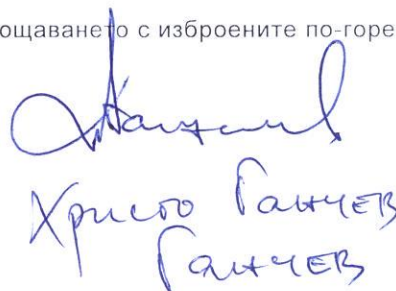 ощаването с изброените по-горе
Христо Ганчев
Ганчев